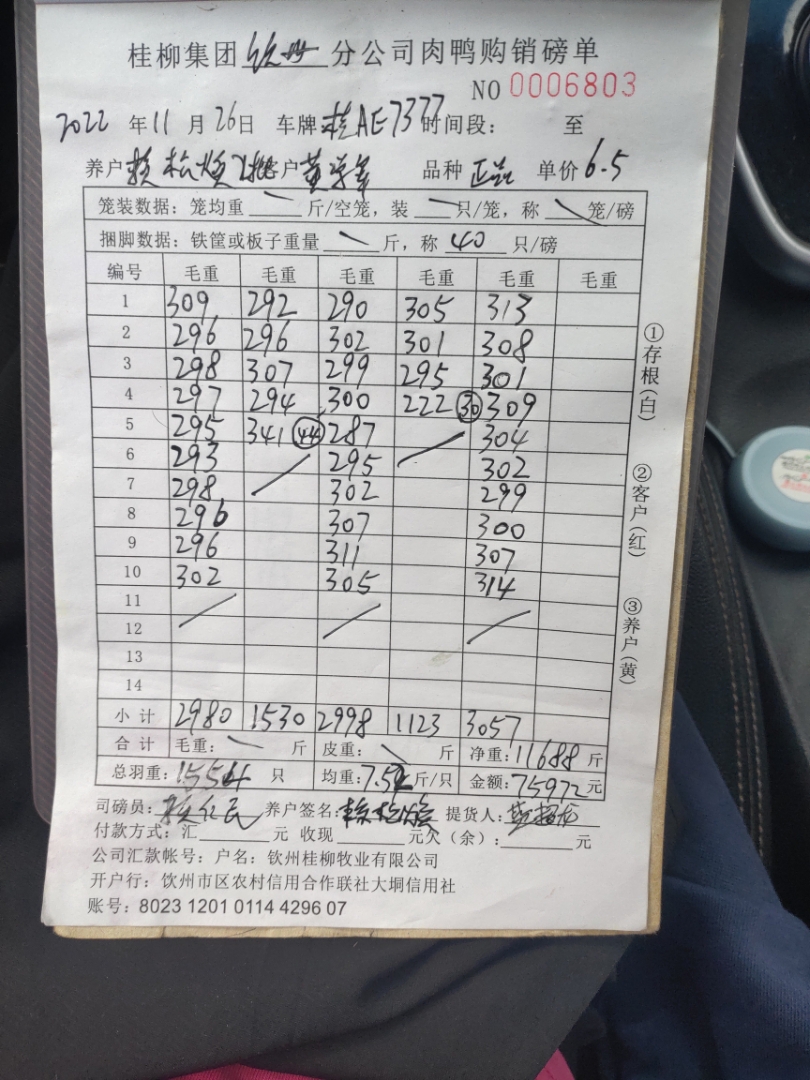 桂柳集团钦州分公司肉鸭购销磅单
NO 0006803
2022 年 11 月 26 日 车牌 桂AE7377 时间段: 至
养户 客户 品种 单价 6.5
笼装数据: 笼均重 斤/空笼, 装 只/笼, 称 笼/磅
捆脚数据: 铁筐或板子重量 斤, 称 40 只/磅
编号 毛重 毛重 毛重 毛重 毛重 毛重
1 309 292 290 305 313
2 296 296 302 301 308
3 298 307 299 295 301
4 297 294 300 222 30 309
5 295 341 44 287 304
6 293 295 302
7 298 302 299
8 296 307 300
9 296 311 307
10 302 305 314
11
12
13
14
小计 2980 1530 2998 1123 3057
合计 毛重: 斤 皮重: 斤 净重: 11688 斤
总羽重: 1554 只 均重: 7.52 斤/只 金额: 75972 元
司磅员: 养户签名: 提货人:
付款方式: 汇 元 收现 元欠(余): 元
公司汇款帐号: 户名: 钦州桂柳牧业有限公司
开户行: 钦州市区农村信用合作联社大垌信用社
账号: 8023 1201 0114 4296 07
①存根(白)
②客户(红)
③养户(黄)